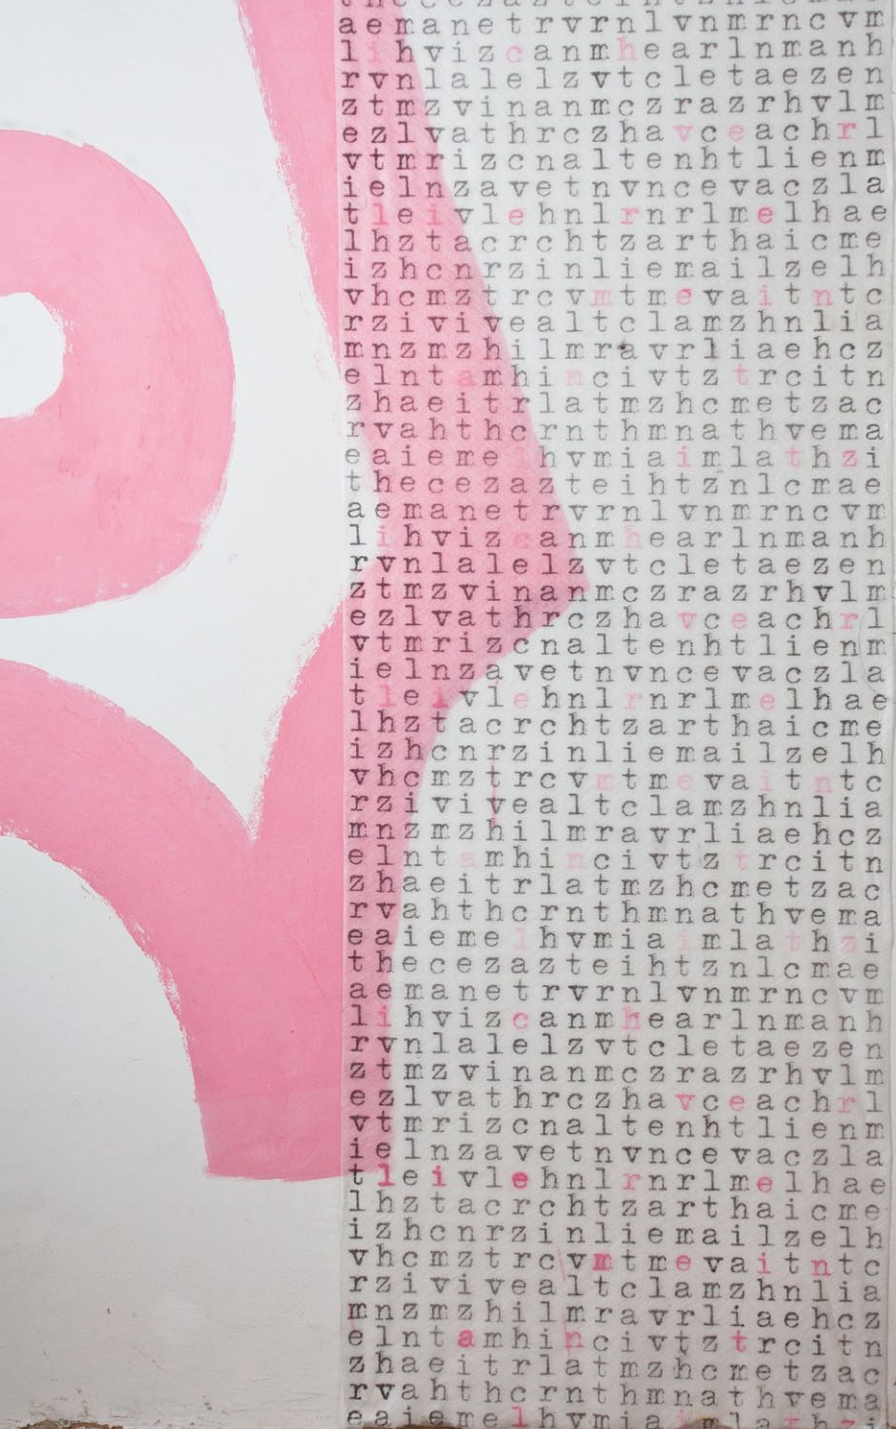 aemanetrvrnlvnmrncvm
lihvizcanmhearlnmanh
rvnlalelzvtcletaezen
ztmzvinanmczrazrhvlm
ezlvathrczhavceachrl
vtmrizcnaltenhtlienm
ielnzavetnvncevaczla
tleivlehnlrnrlmelhae
lhztacrchtzarthaicme
izhcnrzinliemailzelh
vhcmztrcvmtmevaitntc
rzivivealtclamzhnlia
mnzmzhilmravrliaehcz
elntamhincivtztrcitn
zhaeitrlatmzhcmetzac
rvahthcrnthmnathvema
eaiemelhvmiaimlathzi
thecezazteihtznlcmae
aemanetrvrnlvnmrncvm
lihvizcanmhearlnmanh
rvnlalelzvtcletaezen
ztmzvinanmczrazrhvlm
ezlvathrczhavceachrl
vtmrizcnaltenhtlienm
ielnzavetnvncevaczla
tleivlehnlrnrlmelhae
lhztacrchtzarthaicme
izhcnrzinliemailzelh
vhcmztrcvmtmevaitntc
rzivivealtclamzhnlia
mnzmzhilmravrliaehcz
elntamhincivtztrcitn
zhaeitrlatmzhcmetzac
rvahthcrnthmnathvema
eaiemelhvmiaimlathzi
thecezazteihtznlcmae
aemanetrvrnlvnmrncvm
lihvizcanmhearlnmanh
rvnlalelzvtcletaezen
ztmzvinanmczrazrhvlm
ezlvathrczhavceachrl
vtmrizcnaltenhtlienm
ielnzavetnvncevaczla
tleivlehnlrnrlmelhae
lhztacrchtzarthaicme
izhcnrzinliemailzelh
vhcmztrcvmtmevaitntc
rzivivealtclamzhnlia
mnzmzhilmravrliaehcz
elntamhincivtztrcitn
zhaeitrlatmzhcmetzac
rvahthcrnthmnathvema
eaiemelhvmiaimlathzi